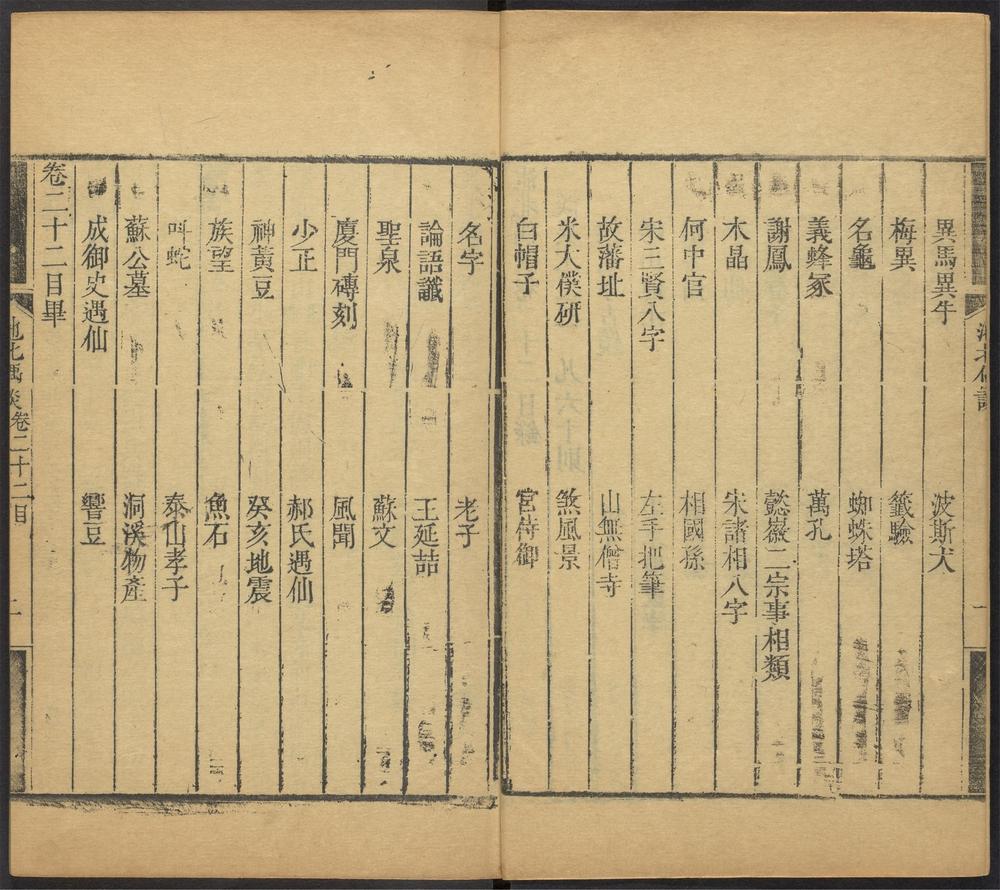 異馬異牛　波斯犬
梅異　籤驗
名龜　蜘蛛塔
義蜂冢　萬孔
謝鳳　懿嶽二宗事相類
木晶　宋諸相八字
何中官　相國孫
宋三賢八字　左手把筆
故藩址　山無僧寺
米太僕研　煞風景
白帽子　宮侍御
名字　老子
論語讖　王延喆
聖泉　蘇文
廈門磚刻　風聞
少正　郝氏遇仙
神黃豆　癸亥地震
族望　魚石
叫蛇　泰山孝子
蘇公墓　洞溪物產
成御史遇仙　響豆
卷二十二目畢
池北偶談卷二十二目　二